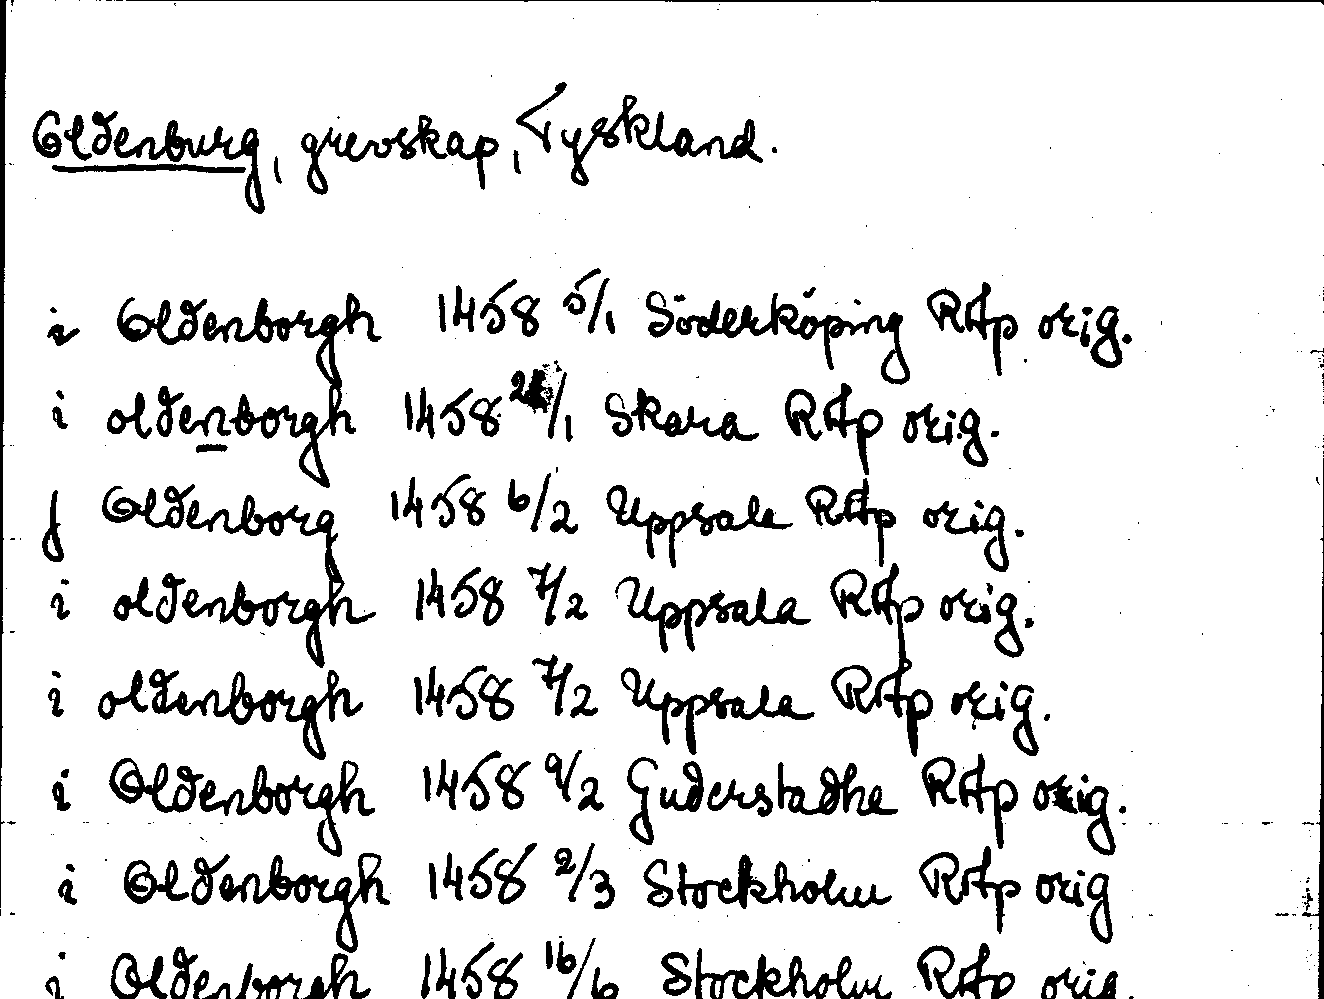 Oldenburg, grevskap, Tyskland.
i Oldenborgh 1458 5/1 Söderköping RAp orig.
i oldenborgh 1458 /1 Skara RAp orig.
j Oldenborg 1458 6/2 Uppsala RAp orig.
i oldenborgh 1458 7/2 Uppsala RAp orig.
i oldenborgh 1458 7/2 Uppsala RAp orig.
i Oldenborgh 1458 9/2 Guderstadhe RAp orig.
i Oldenborgh 1458 2/3 Stockholm RAp orig
i Oldenborgh 1458 16/6 Stockholm RAp orig.